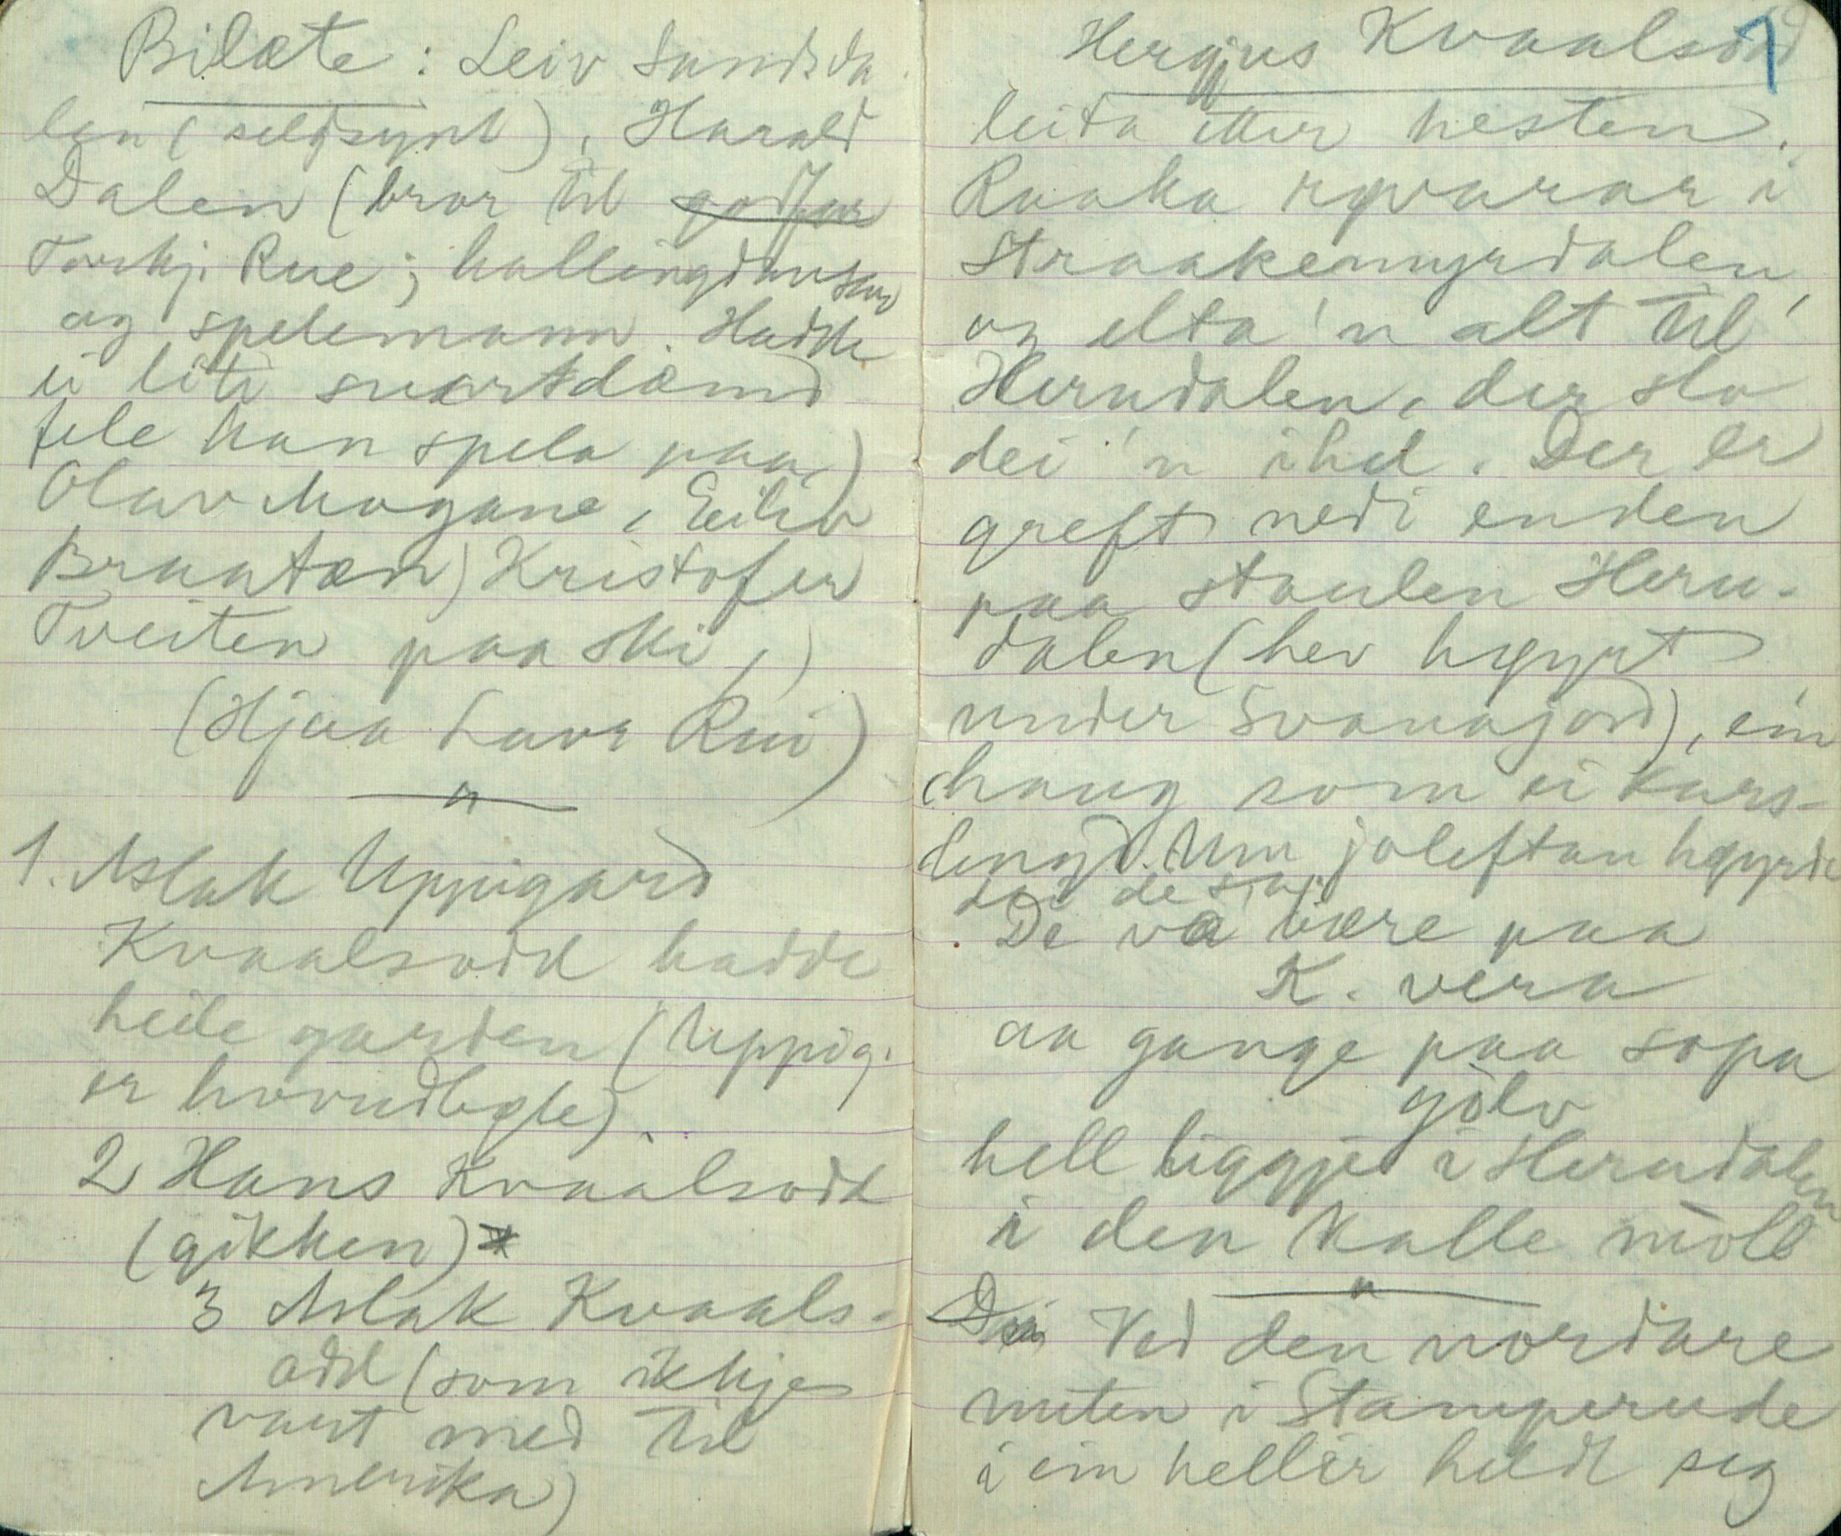 Bilæte: Leiv Sundsda-
len (seldsynt), Harald
Dalen (bror til godfar
Torkj. Rue; hallingdansar
og spelemann. Hadde
ei liti svartdæmd
fele han spela paa)
Olav Mogane, Eiliv
Braatæn) Kristofer
Tveiten paa ski,)
(Hjaa Lavr. Rui)
1. Aslak Uppigard
Kvaalsodd hadde
heile garden (Uppig.
er hovudbøle).
2 Hans Kvaalsodd
(gikken)
3 Aslak Kvaals-
odd (som ikkje
vart med til
Amerika)
1
Hergjus Kvaalsodd
leita etter hesten.
Raaka røvarar i
Straakemyrdalen,
og elta 'n alt til
Herudalen, der slo
dei 'n ihel. Der er
greft nedi enden
paa staulen Heru-
dalen (hev høyrt
under Svanajord), ein
haug som ei kars-
lengd. Um joleftan høyrde
dei de sa:
De va bære paa
K. vera
aa gange paa sopa
golv
hell liggje i Herudalen
i den kalle moll
Ved den nordare
nuten i Stamperude
i ein heller heldt seg